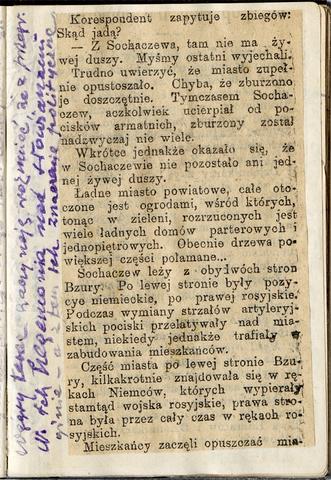 Korespondent zapytuje zbiegów:
Skąd jadą?
— Z Sochaczewa, tam nie ma ży-
wej duszy. Myśmy ostatni wyjechali.
Trudno uwierzyć, że miasto zupeł-
nie opustoszało. Chyba, że zburzono
je doszczętnie. Tymczasem Socha-
czew, aczkolwiek ucierpiał od po-
cisków armatnich, zburzony został
nadzwyczaj nie wiele.
Wkrótce jednakże okazało się, że
w Sochaczewie nie pozostało ani jed-
nej żywej duszy.
Ładne miasto powiatowe, całe oto-
czone jest ogrodami, wśród których,
tonąc w zieleni, rozrzuconych jest
wiele ładnych domów parterowych i
jednopiętrowych. Obecnie drzewa po-
większej części połamane...
Sochaczew leży z obydwóch stron
Bzury. Po lewej stronie były pozy-
cye niemieckie, po prawej rosyjskie.
Podczas wymiany strzałów artyleryj-
skich pociski przelatywały nad mia-
stem, niekiedy jednakże trafiały w
zabudowania mieszkańców.
Część miasta po lewej stronie Bzu-
ry, kilkakrotnie znajdowała się w rę-
kach Niemców, których wypierały
stamtąd wojska rosyjskie, prawa stro-
na była przez cały czas w rękach ro-
syjskich.
Mieszkańcy zaczęli opuszczać mia-
W tych
nad
ich znaczenie polityczne